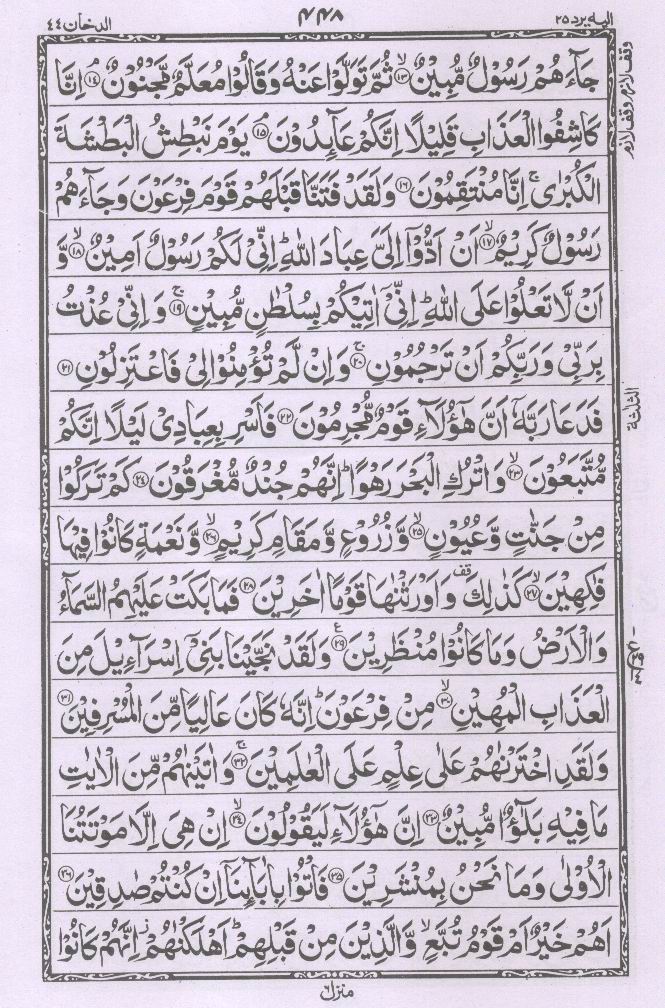 الیه یرد ۲۵
۴۴۸
الدخان ۴۴
جَآءَهُمْ رَسُوْلٌ مُّبِيْنٌ ۙ﴿۱۳﴾ ثُمَّ تَوَلَّوْا عَنْهُ وَقَالُوْا مُعَلَّمٌ مَّجْنُوْنٌ ۘ﴿۱۴﴾ اِنَّا
كَاشِفُوا الْعَذَابِ قَلِيْلًا اِنَّكُمْ عَآىِٕدُوْنَ ۘ﴿۱۵﴾ يَوْمَ نَبْطِشُ الْبَطْشَةَ
الْكُبْرٰى ۚ اِنَّا مُنْتَقِمُوْنَ ﴿۱۶﴾ وَلَقَدْ فَتَنَّا قَبْلَهُمْ قَوْمَ فِرْعَوْنَ وَجَآءَهُمْ
رَسُوْلٌ كَرِيْمٌ ۙ﴿۱۷﴾ اَنْ اَدُّوْۤا اِلَيَّ عِبَادَ اللّٰهِ ؕ اِنِّيْ لَكُمْ رَسُوْلٌ اَمِيْنٌ ۙ﴿۱۸﴾ وَّ
اَنْ لَّا تَعْلُوْا عَلَى اللّٰهِ ؕ اِنِّيْۤ اٰتِيْكُمْ بِسُلْطٰنٍ مُّبِيْنٍ ۚ﴿۱۹﴾ وَاِنِّيْ عُذْتُ
بِرَبِّيْ وَرَبِّكُمْ اَنْ تَرْجُمُوْنِ ۚ﴿۲۰﴾ وَاِنْ لَّمْ تُؤْمِنُوْا لِيْ فَاعْتَزِلُوْنِ ﴿۲۱﴾
فَدَعَا رَبَّهٗۤ اَنَّ هٰۤؤُلَآءِ قَوْمٌ مُّجْرِمُوْنَ ﴿۲۲﴾ فَاَسْرِ بِعِبَادِيْ لَيْلًا اِنَّكُمْ
مُّتَّبَعُوْنَ ۙ﴿۲۳﴾ وَاتْرُكِ الْبَحْرَ رَهْوًا ؕ اِنَّهُمْ جُنْدٌ مُّغْرَقُوْنَ ﴿۲۴﴾ كَمْ تَرَكُوْا
مِنْ جَنّٰتٍ وَّعُيُوْنٍ ۙ﴿۲۵﴾ وَّزُرُوْعٍ وَّمَقَامٍ كَرِيْمٍ ۙ﴿۲۶﴾ وَّنَعْمَةٍ كَانُوْا فِيْهَا
فٰكِهِيْنَ ۙ﴿۲۷﴾ كَذٰلِكَ قف وَاَوْرَثْنٰهَا قَوْمًا اٰخَرِيْنَ ﴿۲۸﴾ فَمَا بَكَتْ عَلَيْهِمُ السَّمَآءُ
وَالْاَرْضُ وَمَا كَانُوْا مُنْظَرِيْنَ ﴿۲۹﴾ع وَلَقَدْ نَجَّيْنَا بَنِيْۤ اِسْرَآءِيْلَ مِنَ
الْعَذَابِ الْمُهِيْنِ ۙ﴿۳۰﴾ مِنْ فِرْعَوْنَ ؕ اِنَّهٗ كَانَ عَالِيًا مِّنَ الْمُسْرِفِيْنَ ﴿۳۱﴾
وَلَقَدِ اخْتَرْنٰهُمْ عَلٰى عِلْمٍ عَلَى الْعٰلَمِيْنَ ۚ﴿۳۲﴾ وَاٰتَيْنٰهُمْ مِّنَ الْاٰيٰتِ
مَا فِيْهِ بَلٰٓؤٌا مُّبِيْنٌ ﴿۳۳﴾ اِنَّ هٰۤؤُلَآءِ لَيَقُوْلُوْنَ ۙ﴿۳۴﴾ اِنْ هِيَ اِلَّا مَوْتَتُنَا
الْاُوْلٰى وَمَا نَحْنُ بِمُنْشَرِيْنَ ﴿۳۵﴾ فَاْتُوْا بِاٰبَآىِٕنَاۤ اِنْ كُنْتُمْ صٰدِقِيْنَ ﴿۳۶﴾
اَهُمْ خَيْرٌ اَمْ قَوْمُ تُبَّعٍ ۙ وَّالَّذِيْنَ مِنْ قَبْلِهِمْ ؕ اَهْلَكْنٰهُمْ ؗ اِنَّهُمْ كَانُوْا
وقف لازم وقف لازم
الثلثة
ع
منزل ۶